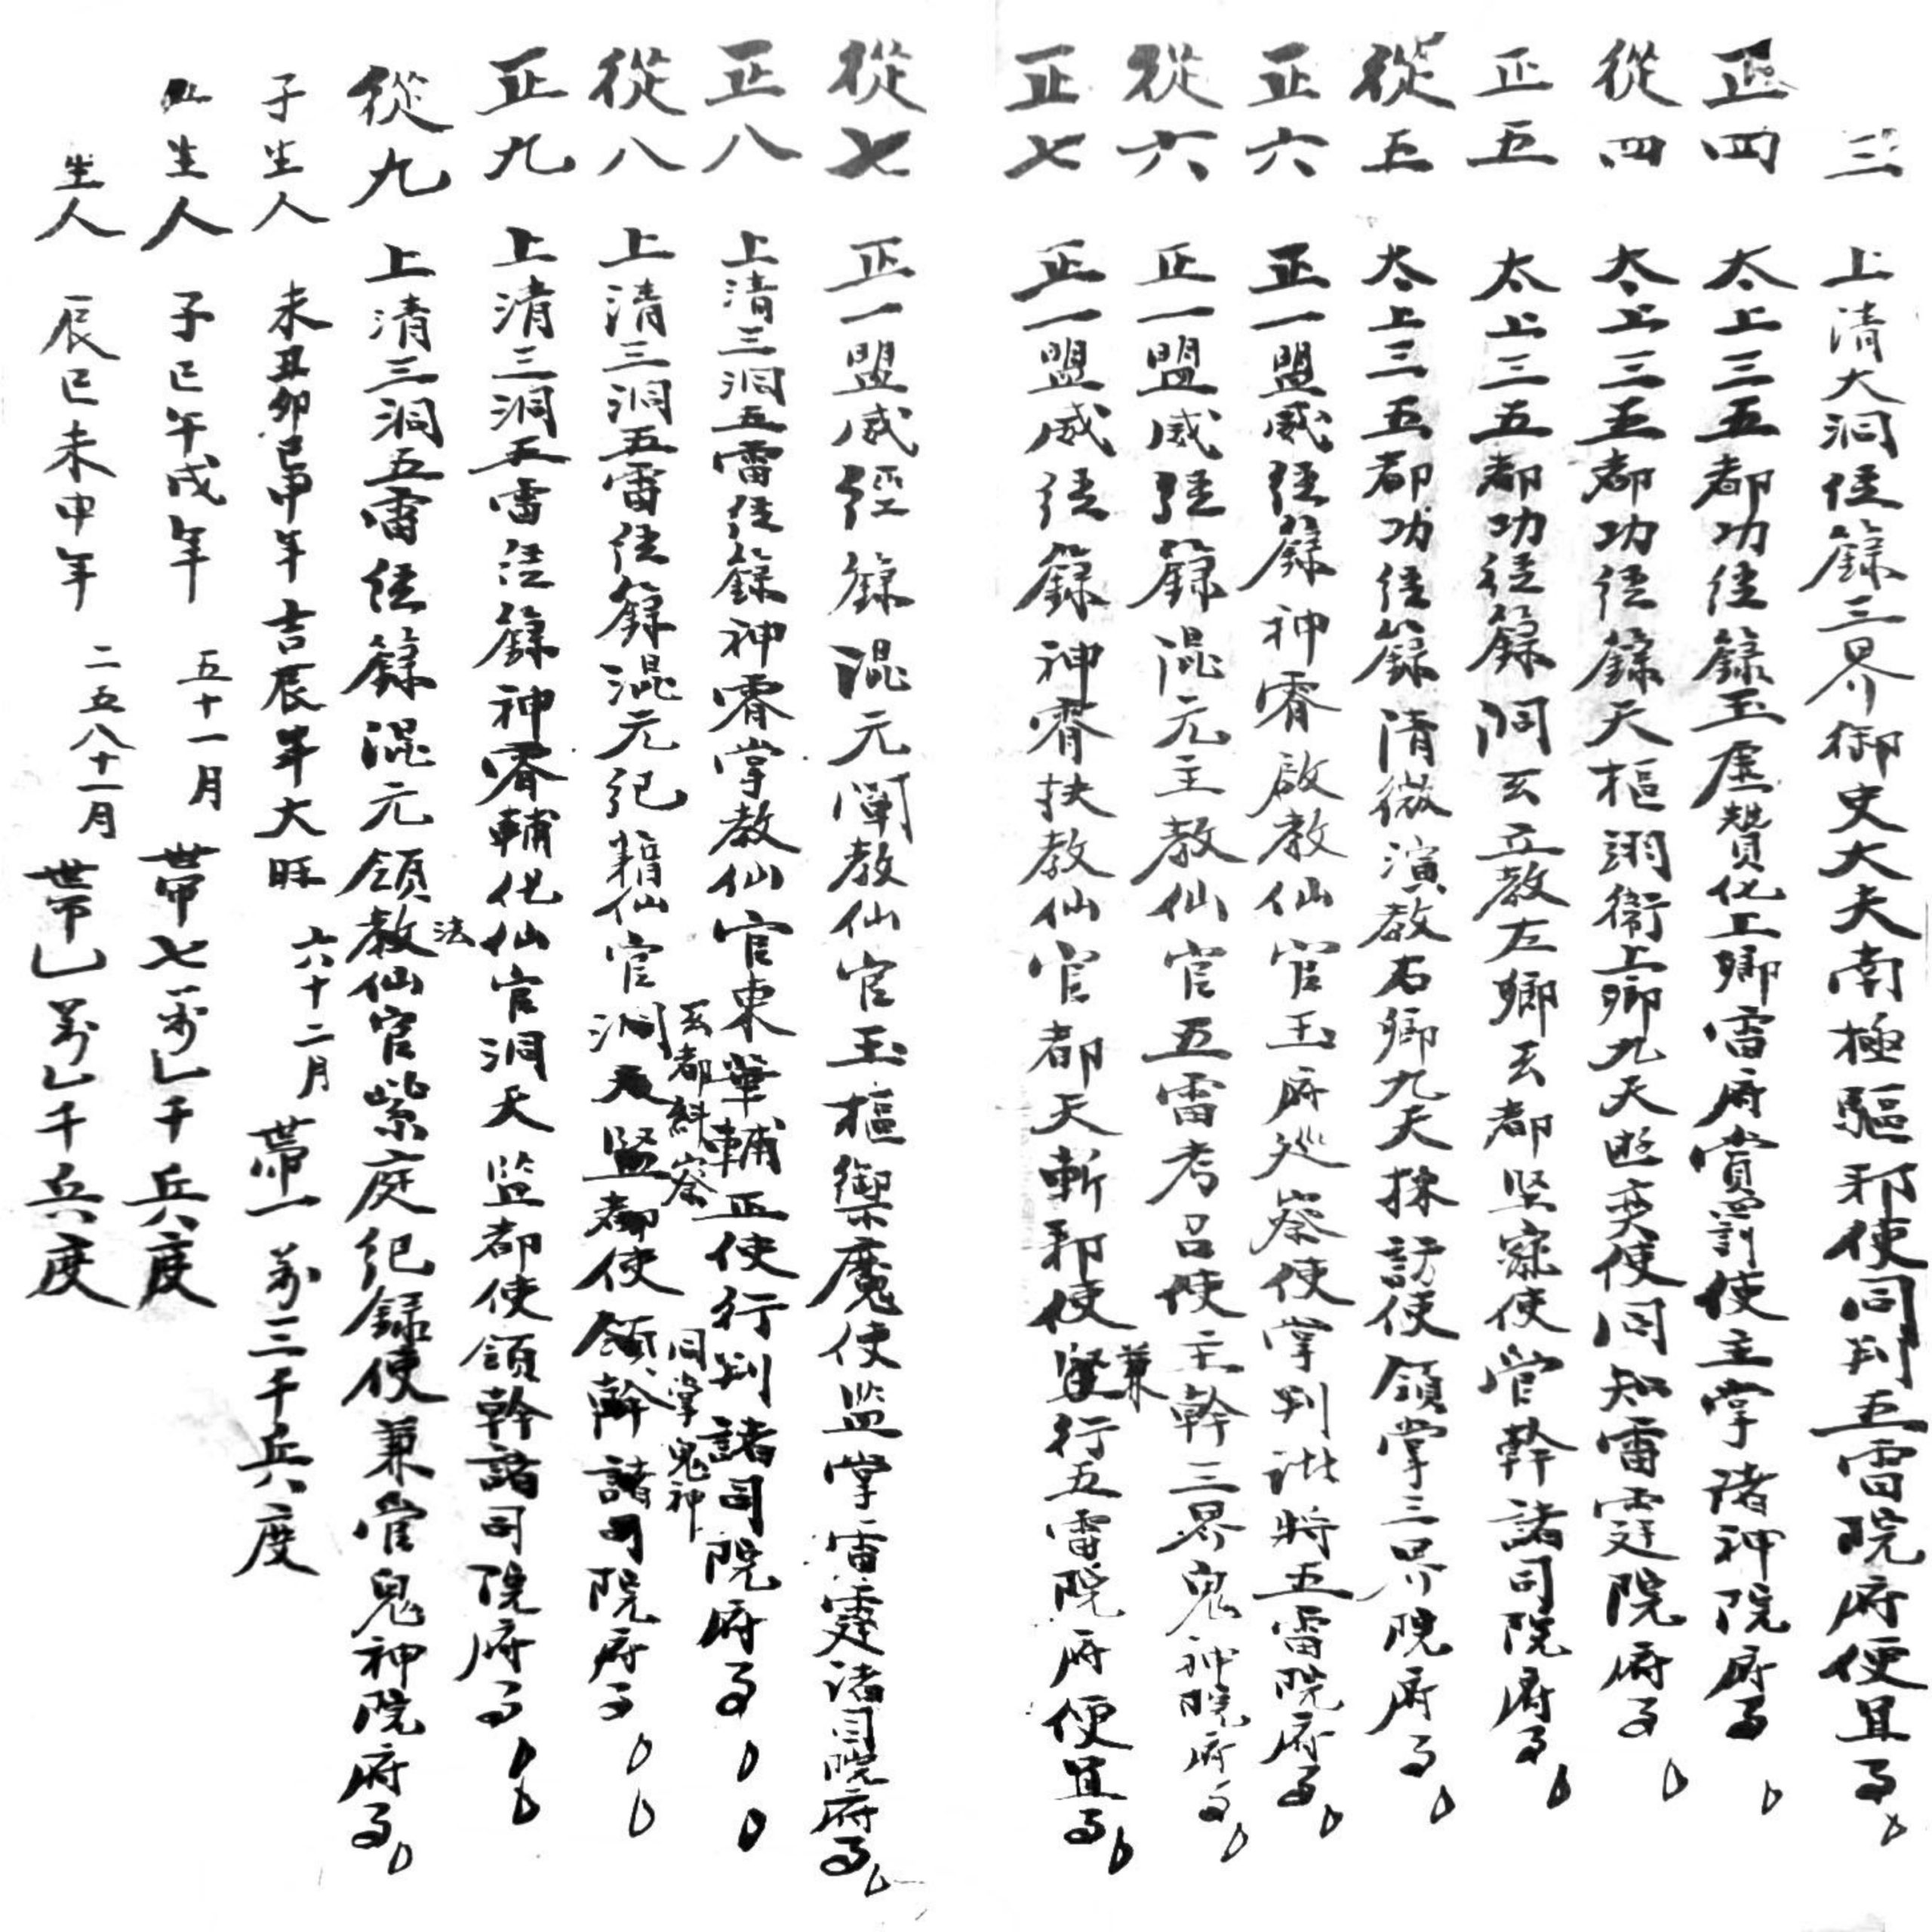 三 上清大洞経籙三界御史大夫南極驅邪使同判五雷院府便宜事
正四 太上三五都功経籙玉虛贊化上卿雷府賞罰使主掌諸神院府事
從四 太上三五都功経籙天樞翊衛上卿九天遊奕使同知雷霆院府事
正五 太上三五都功経籙洞玄立教左卿玄都监察使管幹諸司院府事
從五 太上三五都功経籙清微演教右卿九天採訪使領掌三界院府事
正六 正一盟威経籙神霄啟教仙官玉府巡察使掌判北将五雷院府事
從六 正一盟威経籙混元主教仙官五雷考召使主幹三界鬼神院府事
正七 正一盟威経籙神霄扶教仙官都天斬邪使兼行五雷院府便宜事
從七 正一盟威經籙混元闡教仙官玉樞禦魔使监掌雷霆諸司院府事
正八 上清三洞五雷経籙神霄掌教仙官東華輔正使行判諸司院府事
玄都糾察 同掌鬼神
從八 上清三洞五雷経籙混元紀籍仙官洞天监都使領幹諸司院府事
正九 上清三洞五雷経籙神霄輔化仙官洞天监都使領幹諸司院府事
法
從九 上清三洞五雷経籙混元領教仙官紫庭紀錄使兼管鬼神院府事
子生人 未丑卯巳申年 吉辰年大旺 六十二月 帶一萬三千兵度
丑生人 子巳午戌年 五十一月 帶七萬乚千兵度
生人 辰巳未申年 二五八十一月 帶乚萬乚千兵度